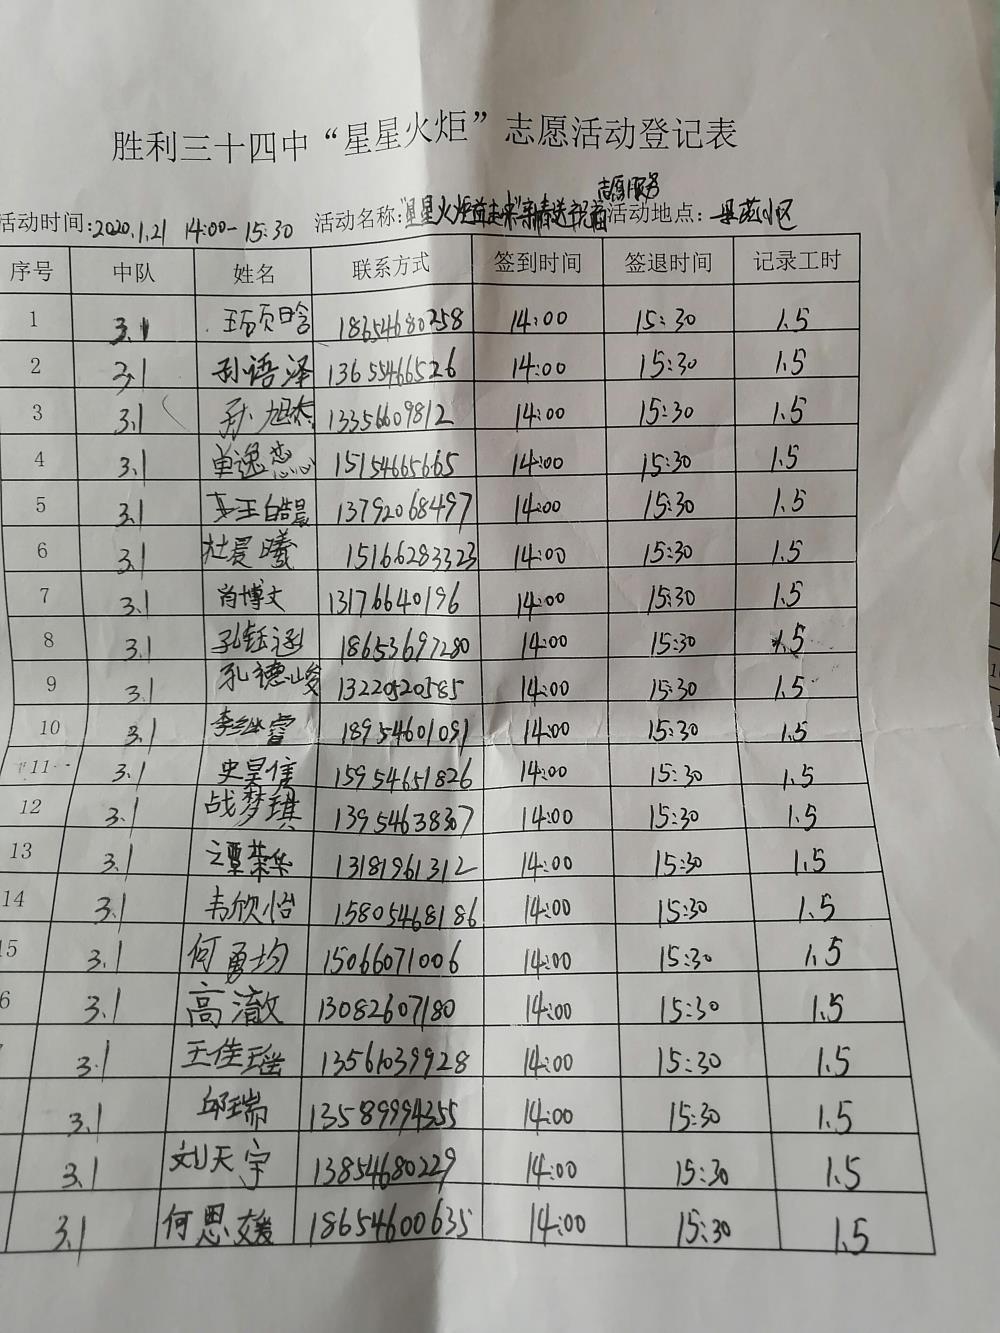 胜利三十四中“星星火炬”志愿活动登记表
志愿服务
活动时间:2020.1.21 14:00-15:30 活动名称:"星星火炬 新春送祝福 活动地点: 小区
序号 中队 姓名 联系方式 签到时间 签退时间 记录工时
1 3.1 18654680258 14:00 15:30 1.5
2 3.1 孙语泽 13655466526 14:00 15:30 1.5
3 3.1 孙旭杰 13356609812 14:00 15:30 1.5
4 3.1 单逸 15154665665 14:00 15:30 1.5
5 3.1 13792068497 14:00 15:30 1.5
6 3.1 杜晨曦 15166283323 14:00 15:30 1.5
7 3.1 肖博文 13176640196 14:00 15:30 1.5
8 3.1 孔钰涵 18653697280 14:00 15:30 1.5
9 3.1 孔德峻 13220520585 14:00 15:30 1.5
10 3.1 李继睿 18954601091 14:00 15:30 1.5
11 3.1 史昊信 15954651826 14:00 15:30 1.5
12 3.1 战梦琪 13954638307 14:00 15:30 1.5
13 3.1 谭荣华 13181961312 14:00 15:30 1.5
14 3.1 韦欣怡 15805468186 14:00 15:30 1.5
15 3.1 何勇均 15066071006 14:00 15:30 1.5
6 3.1 高澈 13082607180 14:00 15:30 1.5
3.1 王佳瑶 13561039928 14:00 15:30 1.5
3.1 邱瑞 13589994355 14:00 15:30 1.5
3.1 刘天宇 13854680229 14:00 15:30 1.5
3.1 何思媛 18654600635 14:00 15:30 1.5